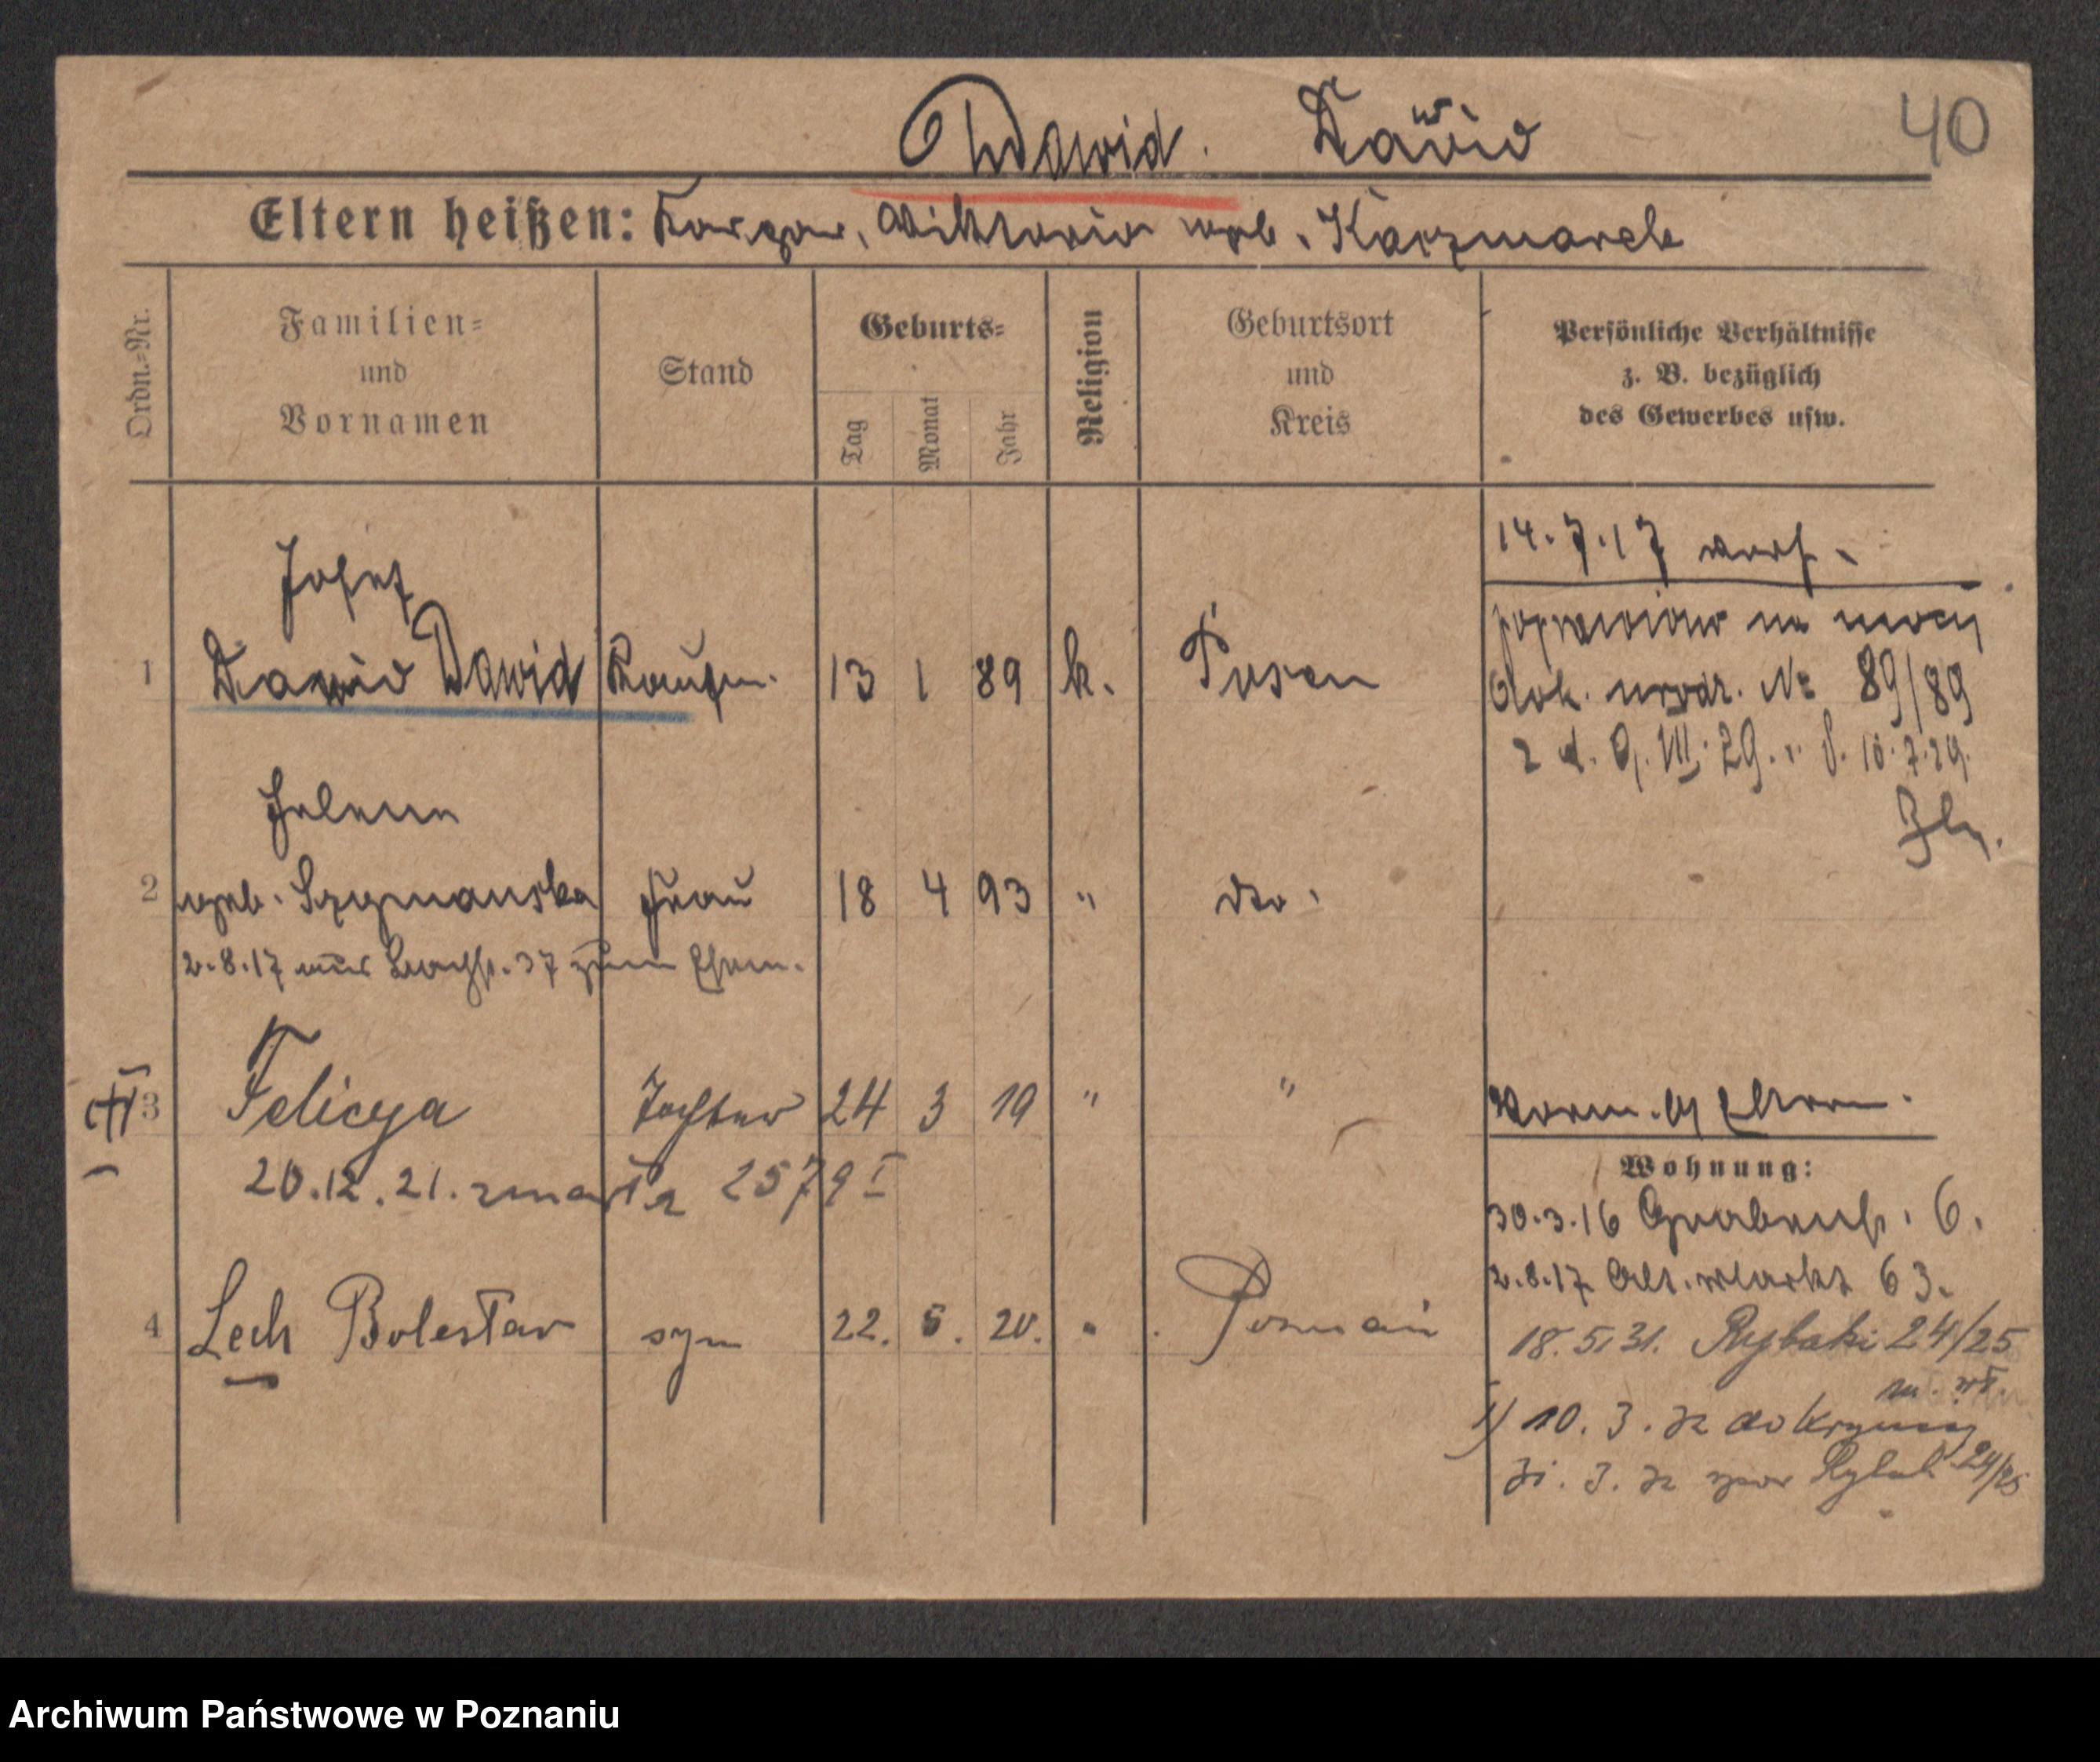 Dawid. David
w
40
Eltern heißen: Kaspar, Wiktoria geb. Kaczmarek
Ordn.=Nr.
Familien= und Vornamen
Stand
Geburts=
Tag
Monat
Jahr
Religion
Geburtsort und Kreis
Persönliche Verhältnisse z. B. bezüglich des Gewerbes usw.
14.7.17 verh.
Josef
1 Dawid Dawid Kaufm. 13 1 89 k. Posen
poprawiono na mocy
dok. urodz. Nr 89/89
z d. 9. VII. 29. 10.7.29.
Helene
2 geb. Szymanska Frau 18 4 93 " dto.
2.8.17 37 zum Ehem.
3 Felicya Tochter 24 3 19 " "
20.12.21. zmarła 2579 I
Wohnung:
30.3.16 Grabenstr. 6.
2.8.17 Alt. Markt 63.
4 Lech Bolesław syn 22. 5. 20. " Poznań
18.5.31. Rybaki 24/25
m. wł.
1) 10. 3. 32 do Krynicy
31. 3. 32 Rybaki 24/25
Archiwum Państwowe w Poznaniu